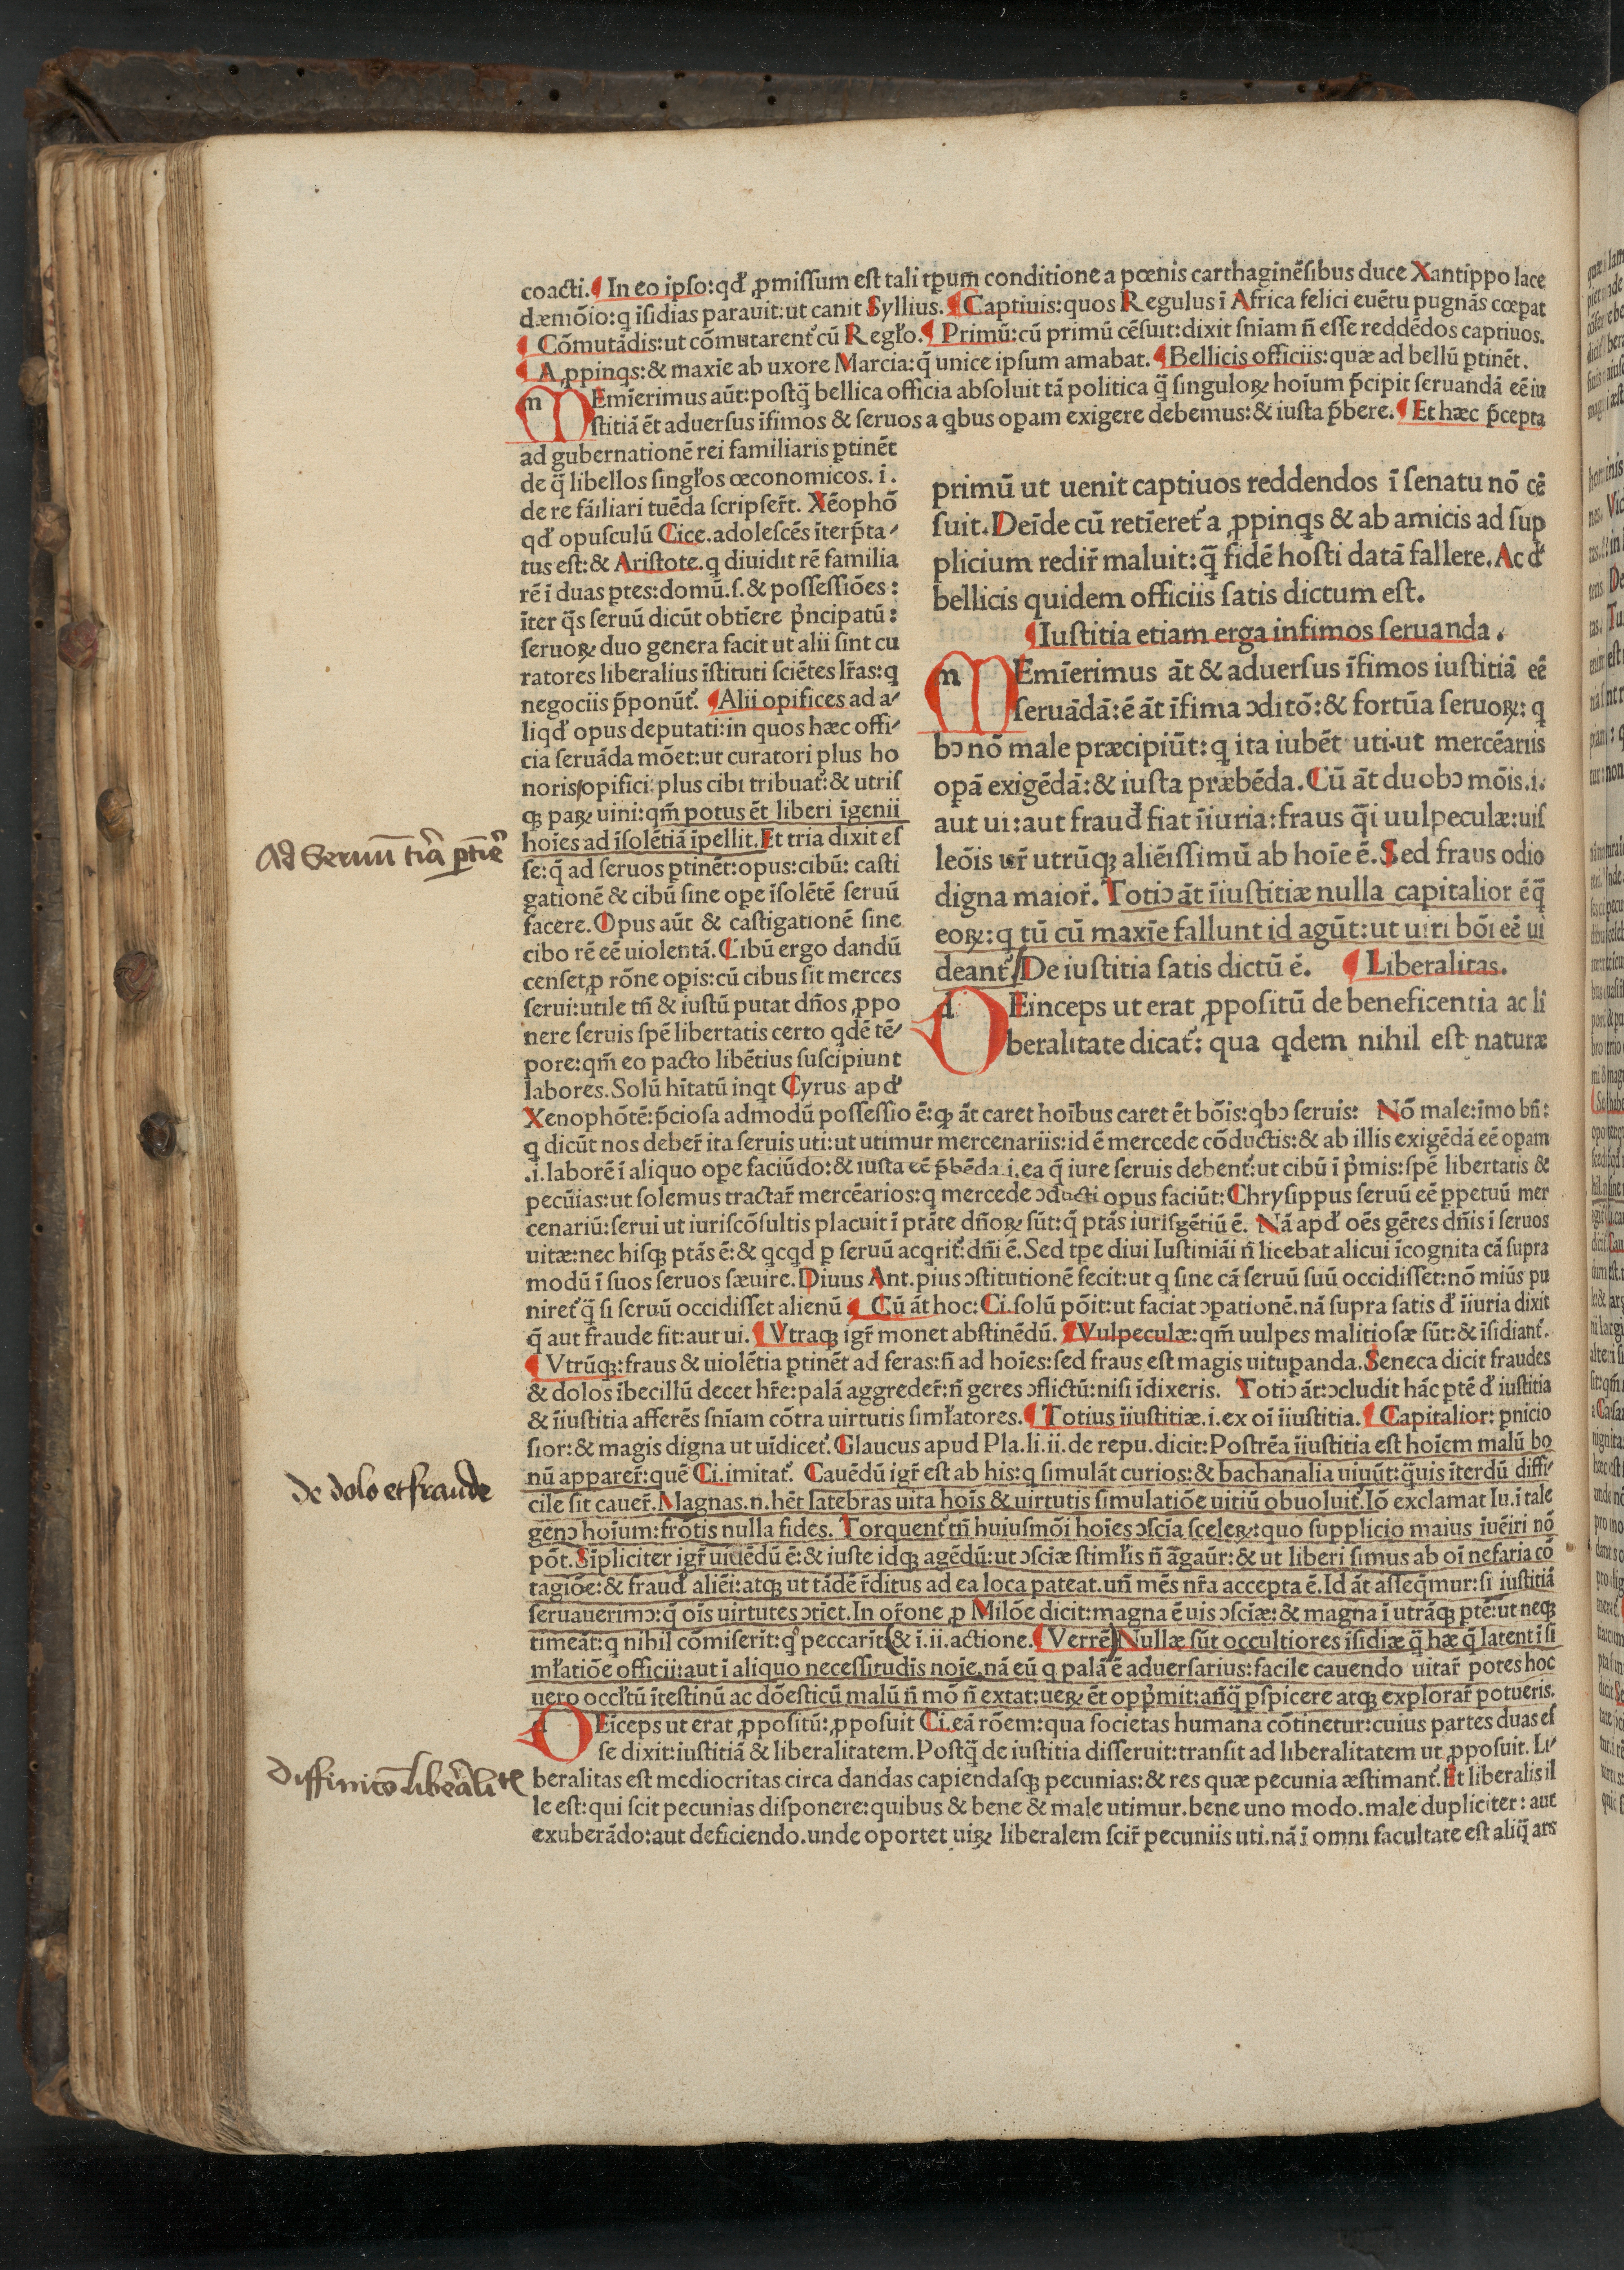 coacti.¶ In eo ipſo:qđ ꝓmiſſum eſt tali tp̄um conditione a pœnis carthaginẽſibus duce Xantippo lace
dæmõio:q ĩſidias parauit:ut canit Syllius. ¶ Captiuis:quos Regulus ĩ Africa felici euẽtu pugnãs cœpat
¶ Cõmutãdis:ut cõmutarent᷑ cũ Regło.¶ Primũ:cũ primũ cẽſuit:dixit ſniam ñ eſſe reddẽdos captiuos.
¶ A ꝓpinqs:& maxĩe ab uxore Marcia:q̃ unice ipſum amabat.¶ Bellicis officiis:quæ ad bellũ ꝑtinẽt.
mEmĩerimus aũt:poſtq̃ bellica officia abſoluit tã politica q̃ ſinguloꝝ hoĩum p̃cipit ſeruandã eẽ iu
ſtitiã ẽt aduerſus ĩfimos & ſeruos a qbus opam exigere debemus:& iuſta p̃bere.¶ Et hæc p̃cepta
ad gubernationẽ rei familiaris ꝑtinẽt
de q̃ libellos ſingłos œconomicos. i.
de re fãiliari tuẽda ſcripſer̃t. Xẽophõ
qđ opuſculũ Cice.adoleſcẽs ĩterp̃ta⸗
tus eſt:& Ariſtote.q diuidit rẽ familia
rẽ ĩ duas ꝑtes:domũ.ſ.& poſſeſſiões:
ĩter q̃s ſeruũ dicũt obtĩere p̃ncipatũ:
ſeruoꝝ duo genera facit ut alii ſint cu
ratores liberalius ĩſtituti ſciẽtes lr̃as:q
negociis p̃ponũt᷑. ¶Alii opifices ad a⸗
liqđ opus deputati:in quos hæc offi⸗
cia ſeruãda mõet:ut curatori plus ho
noris/opifici:plus cibi tribuat᷑:& utriſ
qꝫ paꝝ uini:qm̃ potus ẽt liberi ĩgenii
hoĩes ad ĩſolẽtiã ĩpellit.Et tria dixit eſ
ſe:q̃ ad ſeruos ꝑtinẽt:opus:cibũ: caſti
gationẽ & cibũ ſine ope ĩſolẽtẽ ſeruũ
facere.Opus aũt & caſtigationẽ ſine
cibo rẽ eẽ uiolentã.Cibũ ergo dandũ
cenſet,ꝓ rõne opis:cũ cibus ſit merces
ſerui:utile tñ & iuſtũ putat dños ꝓpo
nere ſeruis ſpẽ libertatis certo qdẽ tẽ⸗
pore:qm̃ eo pacto libẽtius ſuſcipiunt
labores.Solũ hĩtatũ inqt Cyrus apđ
primũ ut uenit captiuos reddendos ĩ ſenatu nõ cẽ
ſuit.Deĩde cũ retĩeret᷑ a ꝓpinqs & ab amicis ad ſup
plicium redir̃ maluit:q̃ fidẽ hoſti datã fallere.Ac đ
bellicis quidem officiis ſatis dictum eſt.
¶Iuſtitia etiam erga infimos ſeruanda.
mEmĩerimus ãt & aduerſus ĩfimos iuſtitiã eẽ
ſeruãdã:ẽ ãt ĩfima ↄditõ:& fortũa ſeruoꝝ: q
bↄ nõ male præcipiũt:q ita iubẽt uti.ut mercẽariis
opã exigẽdã:& iuſta præbẽda.Cũ ãt duobↄ mõis.i.
aut ui:aut frauđ fiat ĩiuria:fraus q̃i uulpeculæ:uiſ
leõis ur̃ utrũqꝫ aliẽiſſimũ ab hoĩe ẽ.Sed fraus odio
digna maior̃.Totiↄ ãt ĩiuſtitiæ nulla capitalior ẽq̃
eoꝝ:q tũ cũ maxĩe fallunt id agũt:ut uiri bõi eẽ ui
deant᷑/De iuſtitia ſatis dictũ ẽ. ¶ Liberalitas.
dEinceps ut erat ꝓpoſitũ de beneficentia ac li
beralitate dicat᷑: qua qdem nihil eſt naturæ
Xenophõtẽ:p̃cioſa admodũ poſſeſſio ẽ:qꝫ ãt caret hoĩbus caret ẽt bõis:qbↄ ſeruis: Nõ male:ĩmo bñ:
q dicũt nos deber̃ ita ſeruis uti:ut utimur mercenariis:id ẽ mercede cõductis:& ab illis exigẽdã eẽ opam
.i.laborẽ ĩ aliquo ope faciũdo:& iuſta eẽ p̃bẽda.i.ea q̃ iure ſeruis debent᷑:ut cibũ ĩ p̃mis:ſpẽ libertatis &
pecũias:ut ſolemus tractar̃ mercẽarios:q mercede ↄducti opus faciũt:Chryſippus ſeruũ eẽ ꝑpetuũ mer
cenariũ:ſerui ut iuriſcõſultis placuit ĩ ptãte dñoꝝ ſũt:q̃ ptãs iuriſgẽtiũ ẽ. Nã apđ oẽs gẽtes dñis ĩ ſeruos
uitæ:nec hiſqꝫ ptãs ẽ:& qcqđ ꝑ ſeruũ acqrit᷑:dñi ẽ.Sed tpe diui Iuſtiniãi ñ licebat alicui ĩcognita cã ſupra
modũ ĩ ſuos ſeruos ſæuire.Diuus Ant.pius ↄſtitutionẽ fecit:ut q ſine cã ſeruũ ſuũ occidiſſet:nõ miũs pu
niret᷑ q̃ ſi ſeruũ occidiſſet alienũ ¶ Cũ ãt hoc:Ci.ſolũ põit:ut faciat ↄpationẽ.nã ſupra ſatis đ ĩiuria dixit
q̃ aut fraude fit:aut ui.¶ Vtraqꝫ igr̃ monet abſtinẽdũ. ¶Vulpeculæ:qm̃ uulpes malitioſæ ſũt:& ĩſidiant᷑.
¶ Vtrũqꝫ:fraus & uiolẽtia ꝑtinẽt ad feras:ñ ad hoĩes:ſed fraus eſt magis uitupanda.Seneca dicit fraudes
& dolos ĩbecillũ decet hr̃e:palã aggreder̃:ñ geres ↄflictũ:niſi ĩdixeris. Totiↄ ãt:ↄcludit hãc ptẽ đ iuſtitia
& ĩiuſtitia afferẽs ſnĩam cõtra uirtutis ſimłatores.¶ Totius ĩiuſtitiæ.i.ex oĩ ĩiuſtitia.¶ Capitalior: ꝑnicio
ſior:& magis digna ut uĩdicet᷑.Glaucus apud Pla.li.ii.de repu.dicit:Poſtrẽa ĩiuſtitia eſt hoĩem malũ bo
nũ apparer̃:quẽ Ci.imitat᷑. Cauẽdũ igr̃ eſt ab his:q ſimulãt curios:& bachanalia uiuũt:q̃uis ĩterdũ diffi⸗
cile ſit cauer̃.Magnas.n.hẽt latebras uita hoĩs & uirtutis ſimulatiõe uitiũ obuoluit᷑.Iõ exclamat Iu.ĩ tale
genↄ hoĩum:frõtis nulla fides. Torquent᷑ tñ huiuſmõi hoĩes ↄſcĩa ſceleꝝ:quo ſupplicio maius ĩuẽiri nõ
põt.Sĩpliciter igr̃ uiuẽdũ ẽ:& iuſte idqꝫ agẽdũ:ut ↄſciæ ſtimłis ñ ãgaũr:& ut liberi ſimus ab oĩ nefaria cõ
tagiõe:& frauđ aliẽi:atqꝫ ut tãdẽ r̃ditus ad ea loca pateat.uñ mẽs nr̃a accepta ẽ.Id ãt aſſeq̃mur:ſi iuſtitiã
ſeruauerimↄ:q̃ oĩs uirtutes ↄtĩet.In or̃one ꝓ Milõe dicit:magna ẽ uis ↄſciæ:& magna ĩ utrãqꝫ ptẽ:ut neqꝫ
timeãt:q nihil cõmiſerĩt:q peccarĩt(& ĩ.ii.actione.¶ Verrẽ)Nullæ ſũt occultiores ĩſidiæ q̃ hæ q̃ latent ĩ ſi
młatiõe officii:aut ĩ aliquo neceſſitudĩs noĩe.nã eũ q palã ẽ aduerſarius:facile cauendo uitar̃ potes hoc
uero occłtũ ĩteſtinũ ac dõeſticũ malũ ñ mõ ñ extat:ueꝝ ẽt opp̃mit:añq̃ ꝑſpicere atqꝫ explorar̃ potueris.
dEĩceps ut erat ꝓpoſitũ:ꝓpoſuit Ci.eã rõem:qua ſocietas humana cõtinetur:cuius partes duas eſ
ſe dixit:iuſtitiã & liberalitatem.Poſtq̃ de iuſtitia diſſeruit:tranſit ad liberalitatem ut ꝓpoſuit. Li⸗
beralitas eſt mediocritas circa dandas capiendaſqꝫ pecunias:& res quæ pecunia æſtimant᷑.Et liberalis il
le eſt:qui ſcit pecunias diſponere:quibus & bene & male utimur.bene uno modo.male dupliciter: aut
exuberãdo:aut deficiendo.unde oportet uiꝝ liberalem ſcir̃ pecuniis uti.nã ĩ omni facultate eſt aliq̃ ars
Ad Seruũ tria ꝑtinẽt
De dolo et fraude
Diffinitõ liberalit